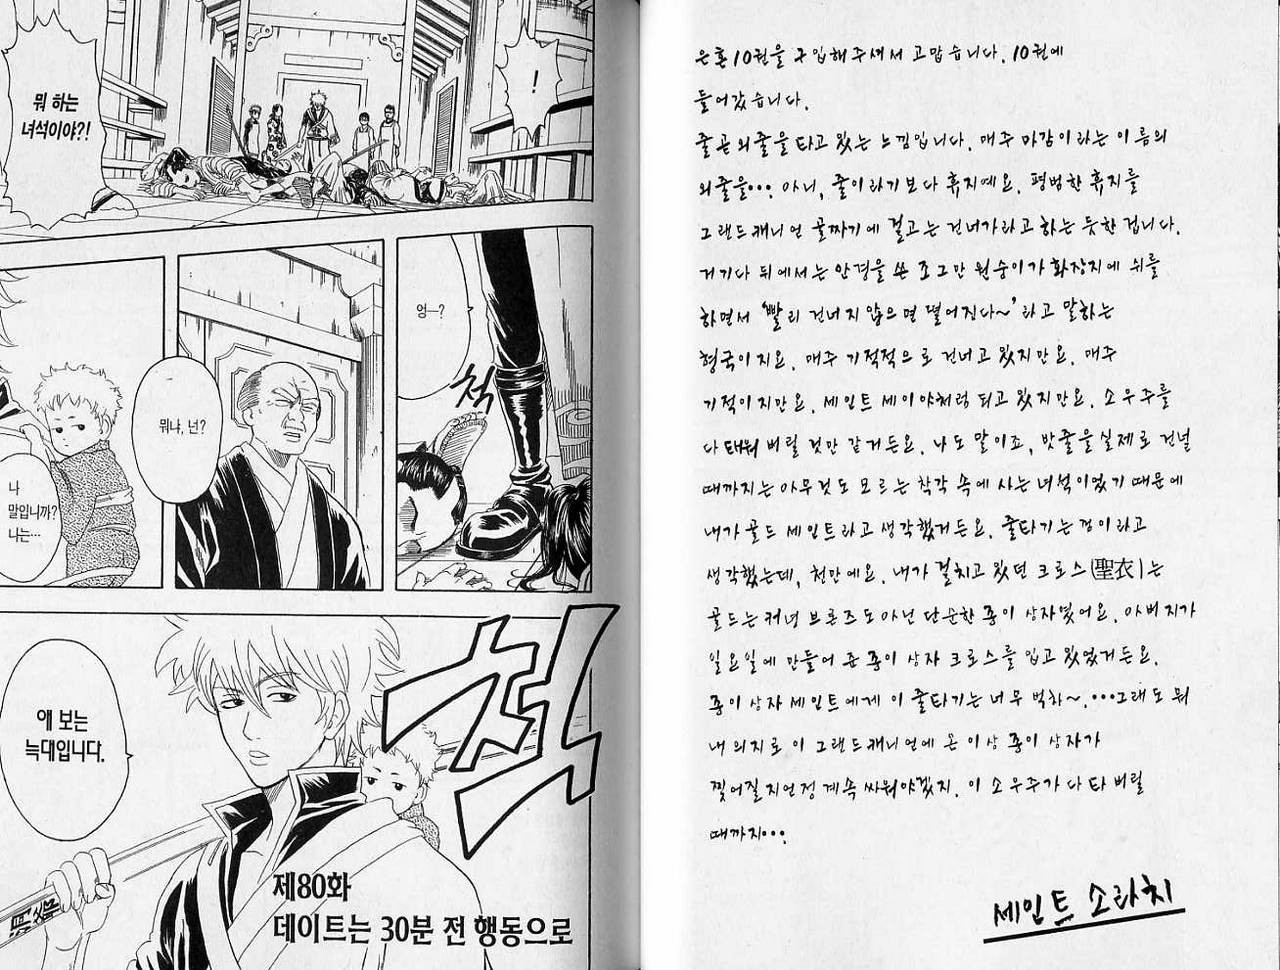 뭐 하는
녀석이야?!
!
뭐냐, 넌?
나
말입니까?
나는…
엉—?
척
척
애 보는
늑대입니다.
제80화
데이트는 30분 전 행동으로
은혼 10권을 구입해주셔서 고맙습니다. 10권에
들어갔습니다.
줄곧 외줄을 타고 있는 느낌입니다. 매주 마감이라는 이름의
외줄을… 아니, 줄이라기보다 휴지예요. 평범한 휴지를
그랜드캐니언 골짜기에 걸고는 건너가라고 하는 듯한 겁니다.
거기다 뒤에서는 안경을 쓴 조그만 원숭이가 화장지에 쉬를
하면서 '빨리 건너지 않으면 떨어진다~' 라고 말하는
형국이지요. 매주 기적적으로 건너고 있지만요. 매주
기적이지만요. 세인트 세이야처럼 되고 있지만요. 소우주를
다 태워 버릴 것만 같거든요. 나도 말이죠, 밧줄을 실제로 건널
때까지는 아무것도 모르는 착각 속에 사는 녀석이었기 때문에
내가 골드 세인트라고 생각했거든요. 줄타기는 껌이라고
생각했는데, 천만에요. 내가 걸치고 있던 크로스(聖衣)는
골드는커녕 브론즈도 아닌 단순한 종이 상자였어요. 아버지가
일요일에 만들어 준 종이 상자 크로스를 입고 있었거든요.
종이 상자 세인트에게 이 줄타기는 너무 벅차~. …그래도 뭐
내 의지로 이 그랜드캐니언에 온 이상 종이 상자가
찢어질지언정 계속 싸워야겠지. 이 소우주가 다 타 버릴
때까지…
세인트 소라치